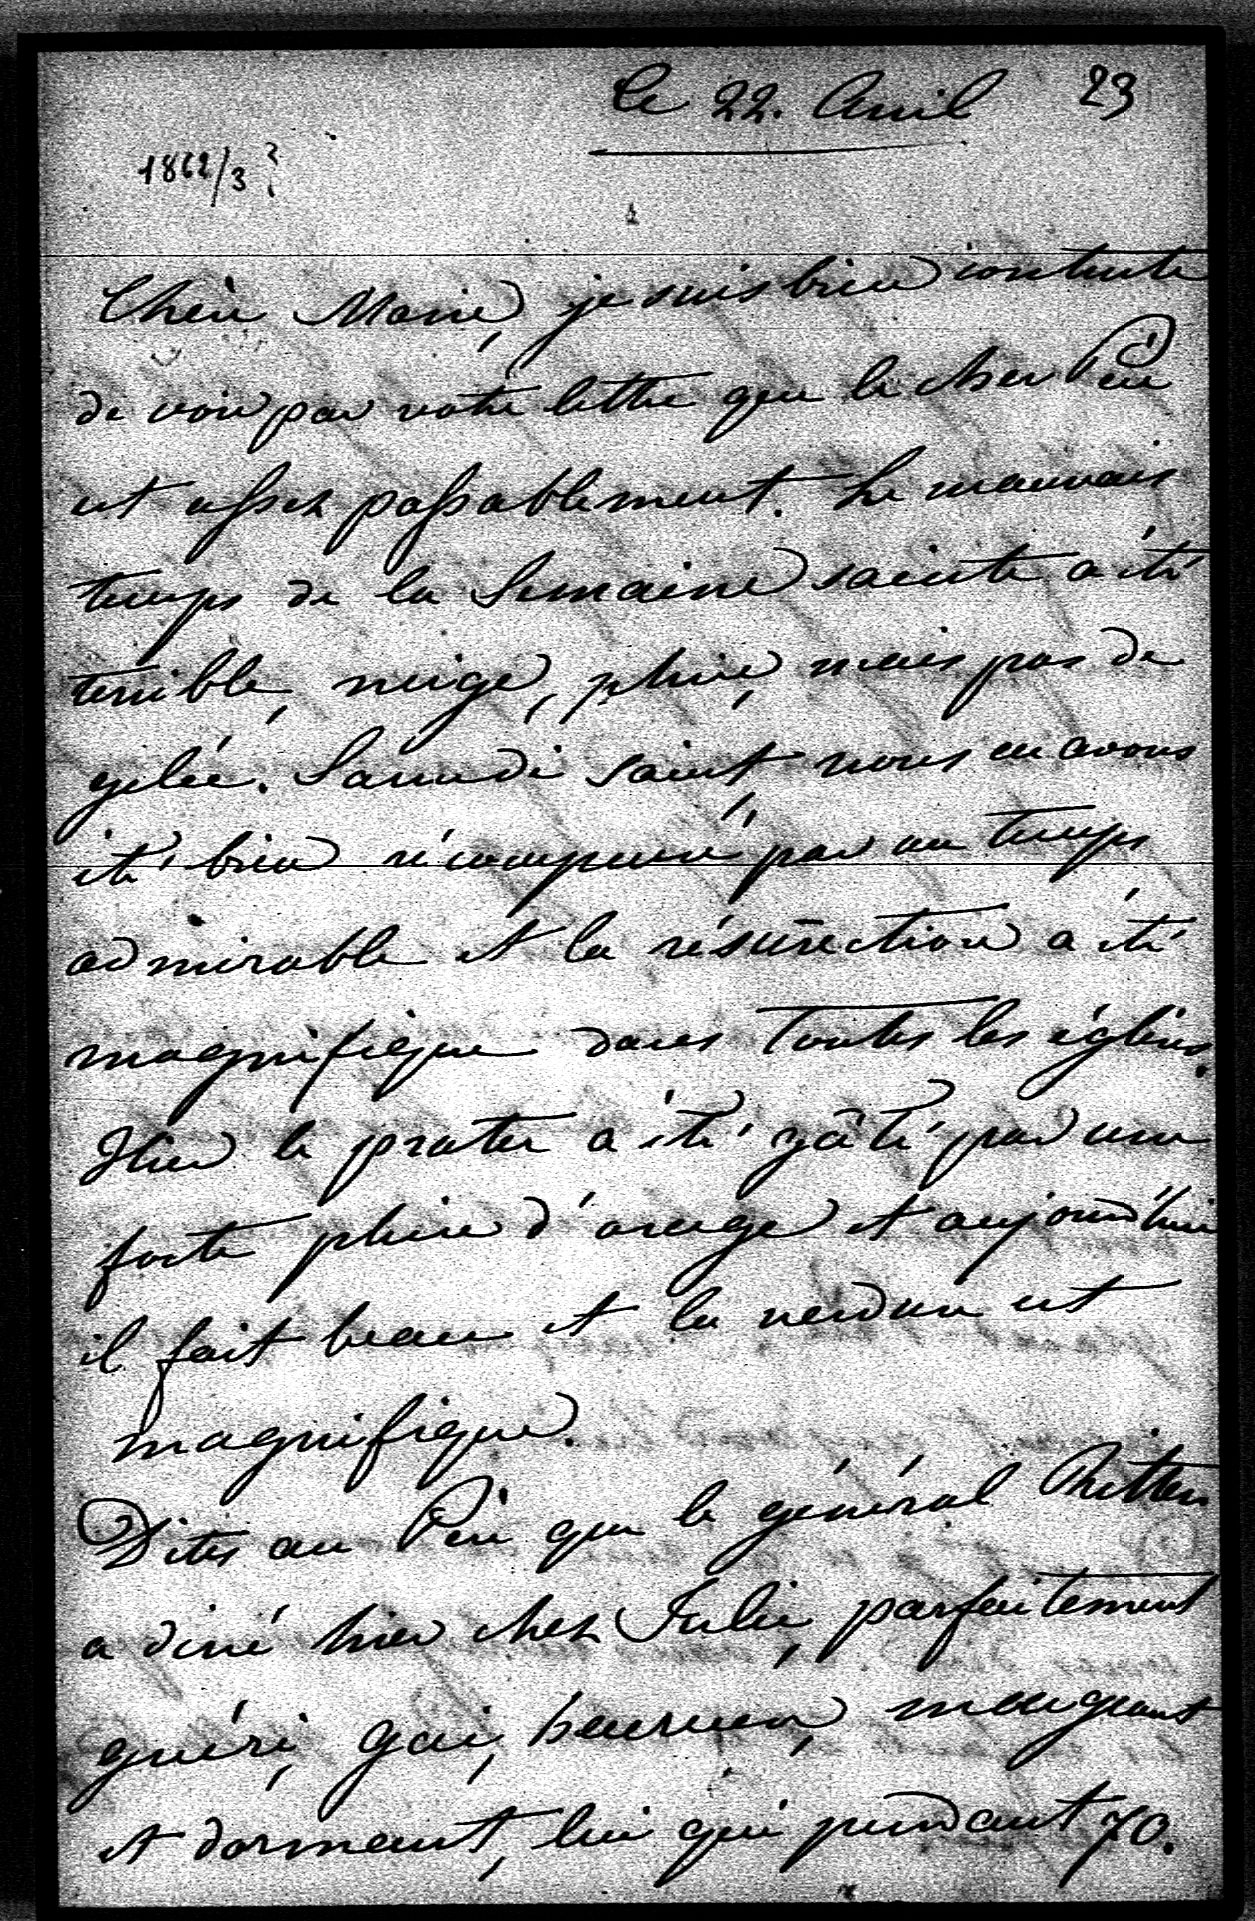 le 22. Avril 23
1862/3?
Chère Marie, je suis bien contente
de voir par votre lettre que le cher Père
est assez passablement. Le mauvais
temps de la Semaine sainte a été
terrible, neige, pluie, mais pas de
gelée. Samedi saint nous en avons
été bien récompensé par un temps
admirable et la résurrection a été
magnifique dans toutes les églises.
Hier le prater a été gâté par une
forte pluie d'orage et aujourd'hui
il fait beau et la verdure est
magnifique.
Dites au Père que le général
a diné hier chez Julie, parfaitement
guéri, gai, heureux, mangeant
et dormant, lui qui pendant 70.